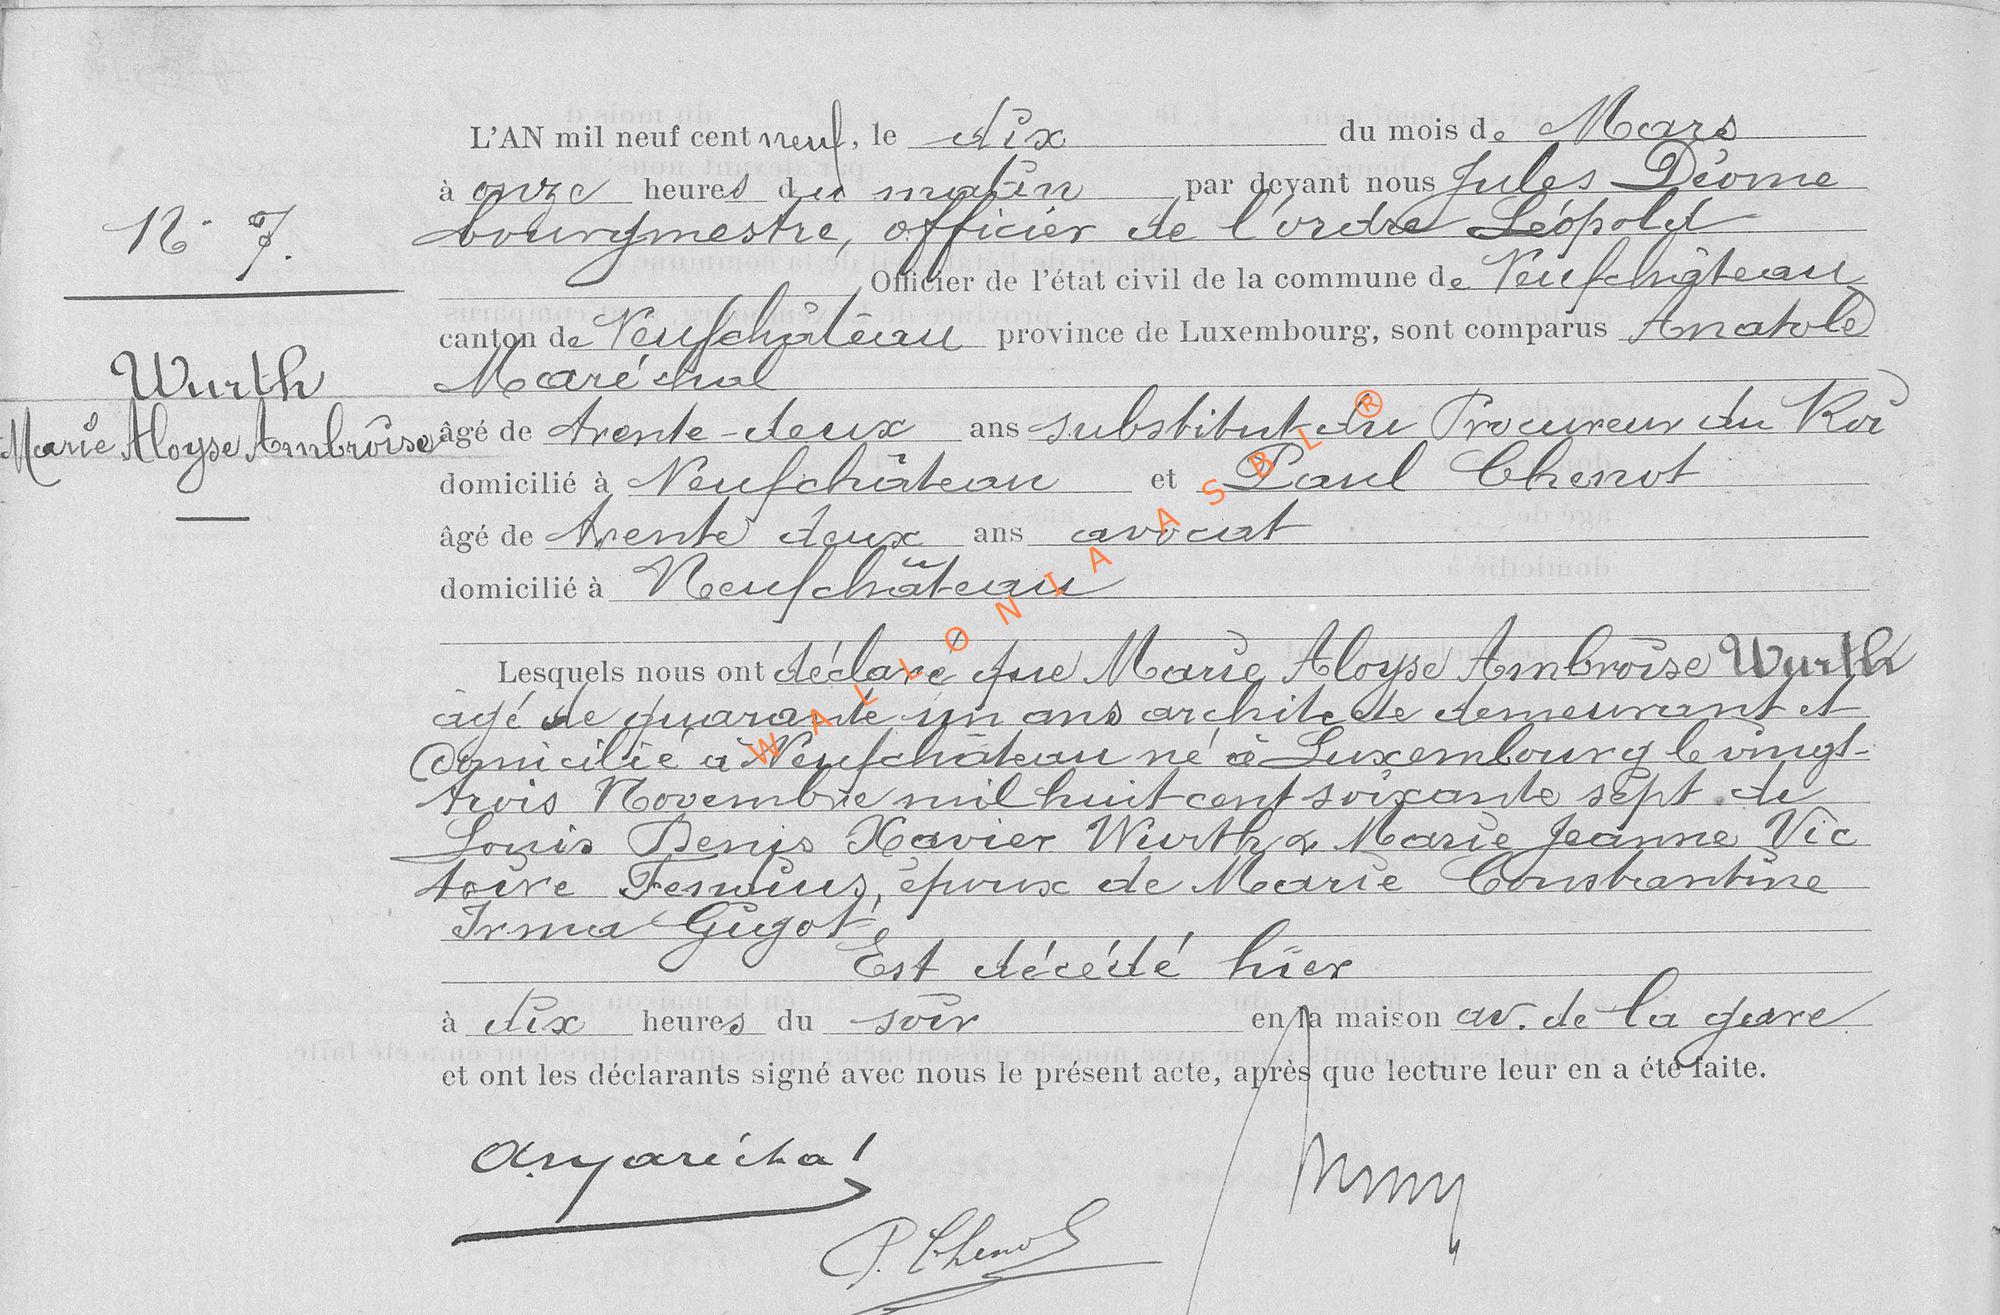 L'AN mil neuf cent neuf, le dix du mois de Mars
à onze heures du matin par devant nous Jules Déome
bourgmestre, officier de l'ordre Léopold
Officier de l'état civil de la commune de Neufchâteau
canton de Neufchâteau province de Luxembourg, sont comparus Anatole
Maréchal
âgé de trente-deux ans substitut du Procureur du Roi
domicilié à Neufchâteau et Paul Chenot
âgé de trente deux ans avocat
domicilié à Neufchâteau
Lesquels nous ont déclaré que Marie Aloyse Ambroise Wurth
âgé de quarante un ans architecte demeurant et
domicilié à Neufchâteau né à Luxembourg le vingt-
trois Novembre mil huit cent soixante sept de
Louis Denis Xavier Wurth & Marie Jeanne Vic
toire Fennius, époux de Marie Constrantine
Irma Gigot,
Est décédé hier
à dix heures du soir en la maison av. de la gare
et ont les déclarants signé avec nous le présent acte, après que lecture leur en a été faite.
N° 7.
Wurth
Marie Aloyse Ambroise
A Maréchal
P. Chenot
WALLONIA ASBL ®